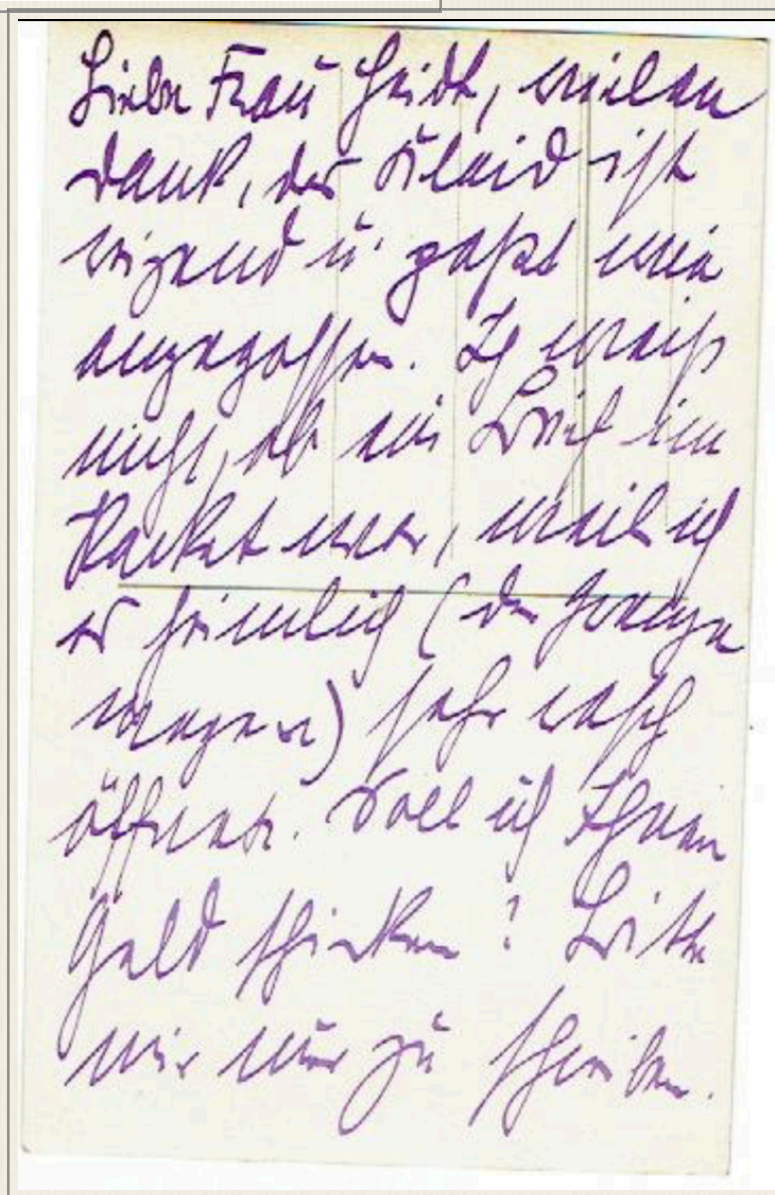 Liebe Frau Heidt, vielen
Dank, das Kleid ist
reizend u. paßt wie
angegossen. Ich weiß
nicht, ob ein Brief im
Packet war, weil ich
es heimlich (der
wegen) sehr rasch
öffnete. Soll ich Ihnen
Geld schicken? Bitte
mir nur zu schreiben.